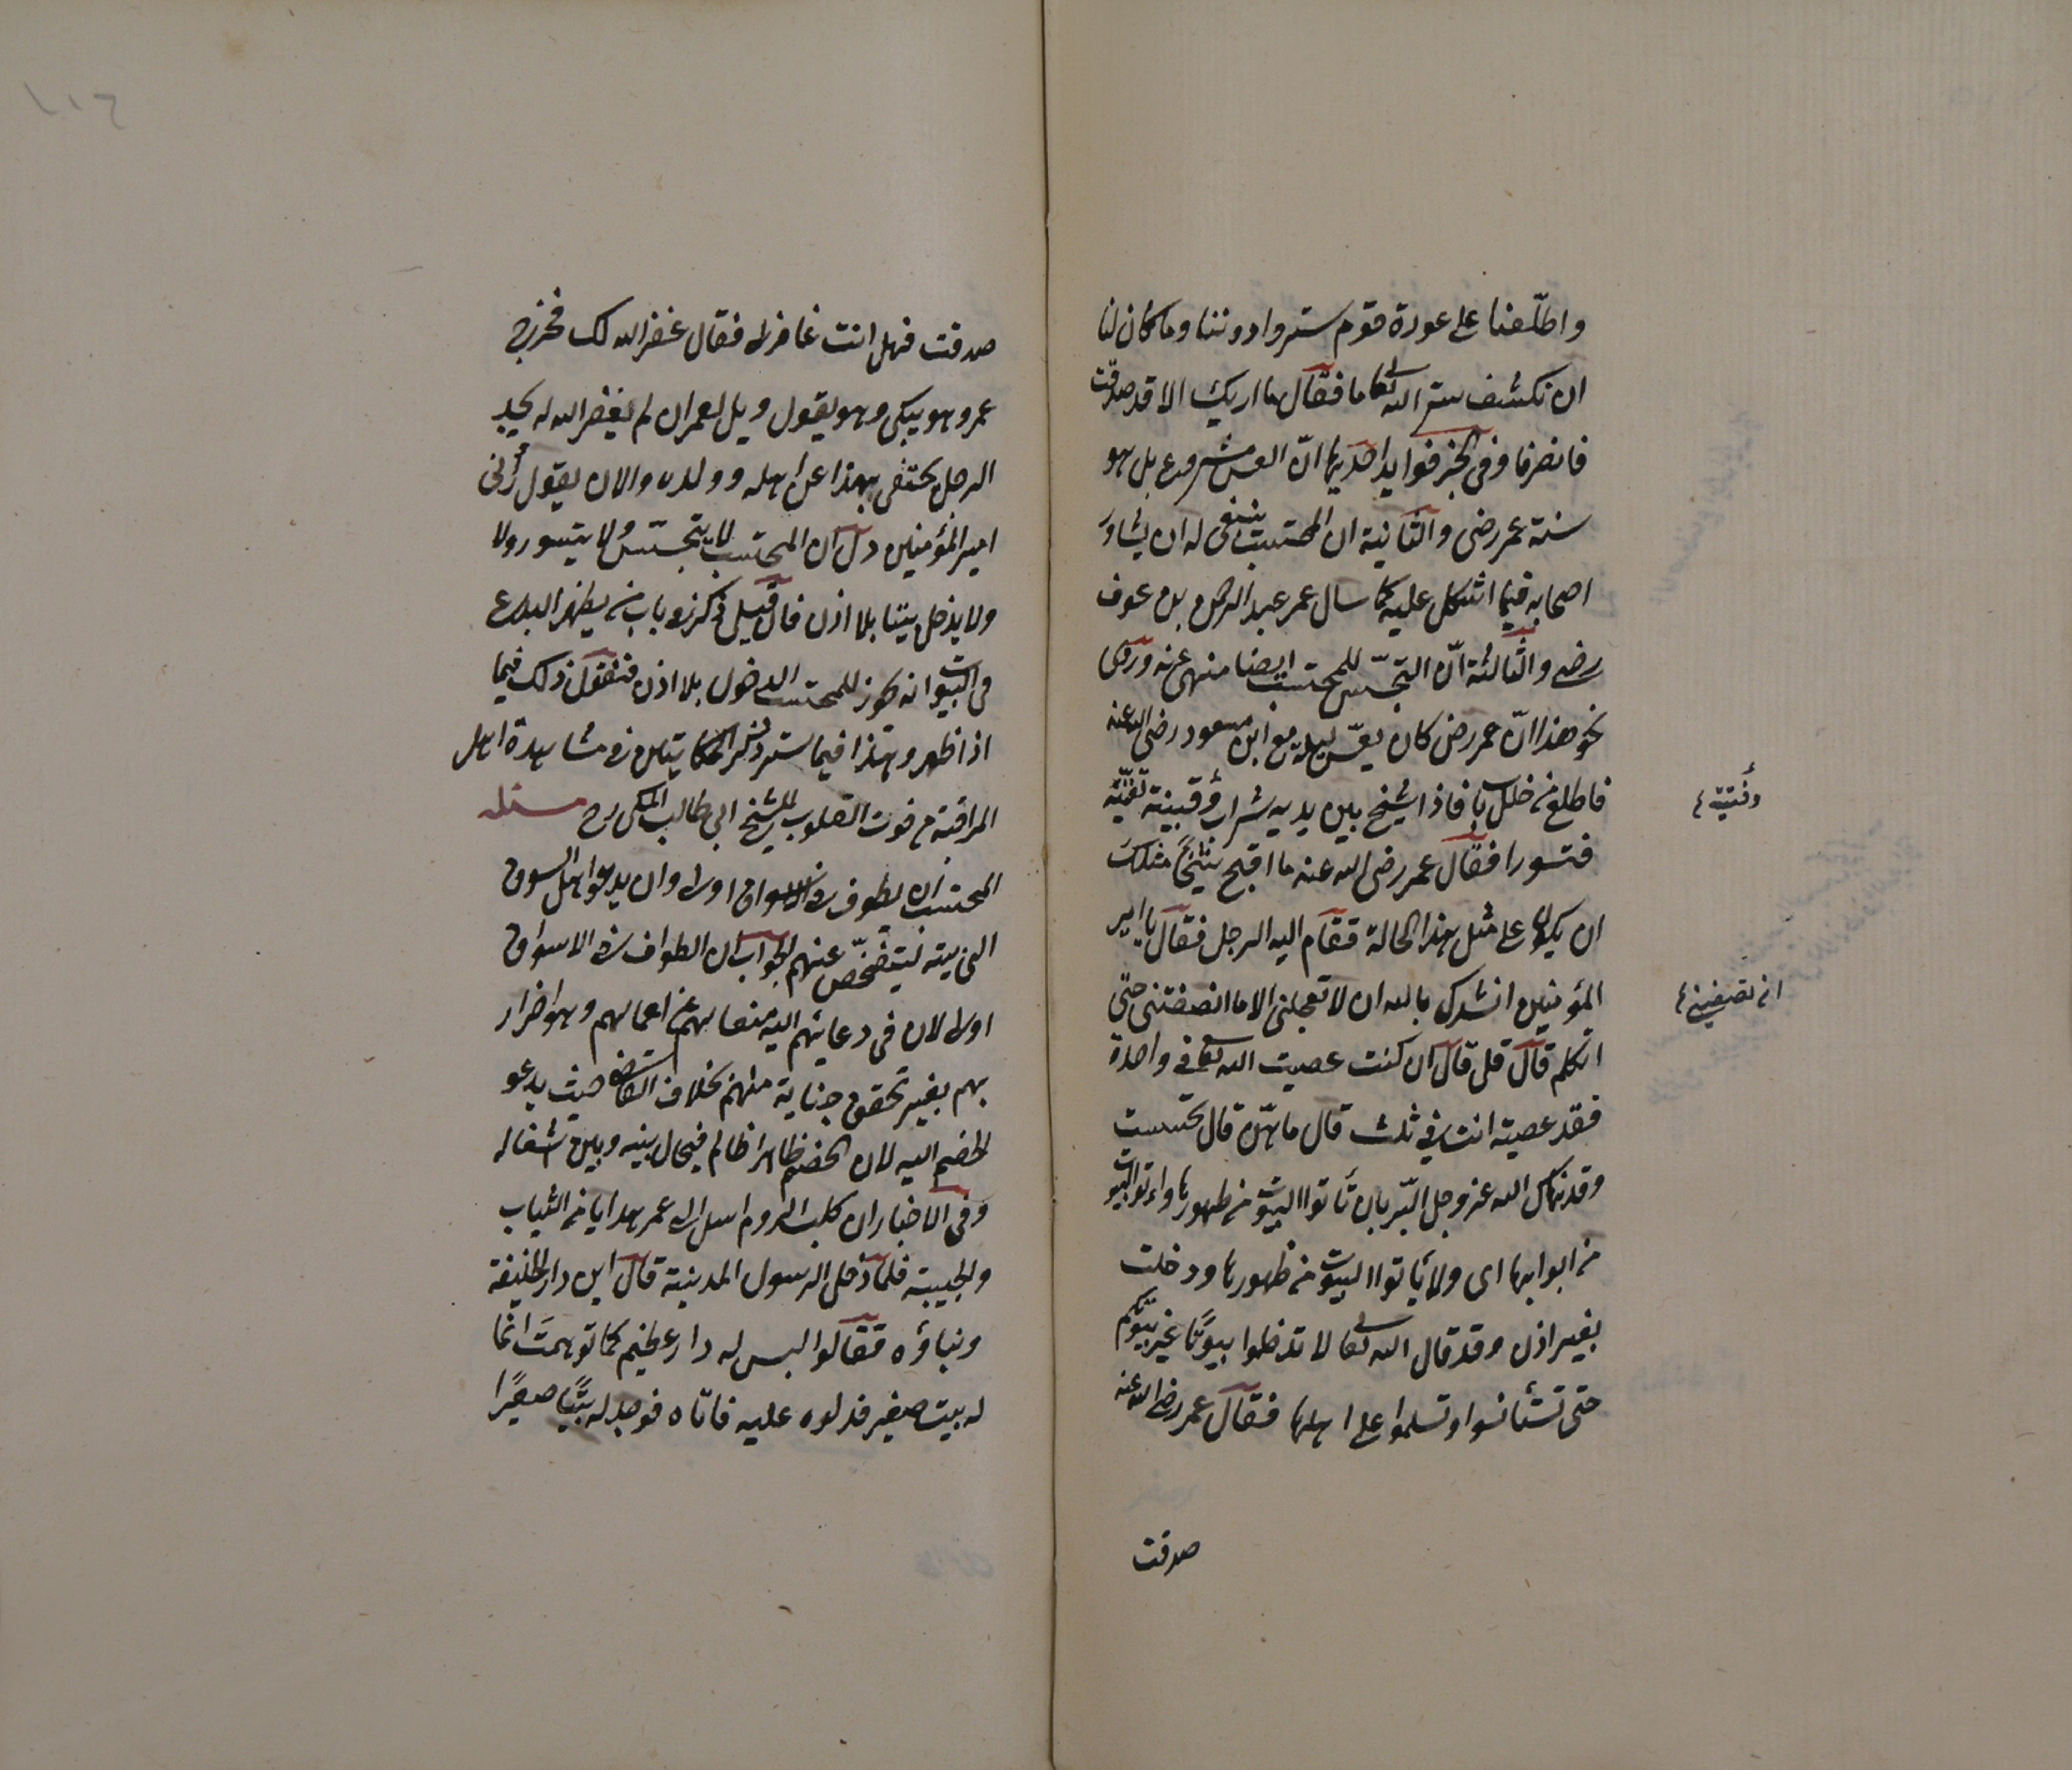 واطّلعنا على عورة قوم ستروا دوننا وما كان لنا
ان نكشف ستر الله تعا فقال ما اريك الا قد صدقت
فانصرفا وفى الخبر فوايد احديها انّ العس مشروع بل هو
سنة عمر رضى والثانية ان المحتسب ينبغى له ان يشاور
اصحابه فيما اشكل عليه كما سال عمر عبد الرحمن بن عوف
رضى والثالثة انّ التجسّس للمحتسب ايضا منهى عنه وروى
نحو هذا انّ عمر رضى كان يعسّ ليلة مع ابن مسعود رضى الله عنه
فاطلع من خلل باب فاذا شيخ بين يديه شراب وقينة تغنّيه
وقينة
فتسورا فقال عمر رضى الله عنه ما اقبح شيخًا مثلك
ان يكون على مثل هذا الحالة فقام اليه الرجل فقال يا امير
المؤمنين انشدك بالله ان لا تعجلنى الا ما انصفتنى حتى
اتكلم قال قل قال ان كنت عصيت الله تعا فى واحدة
فقد عصيته انت فى ثلث قال ما هنّ قال تجسست
وقد نهاك الله عز وجل البّر بان تأتوا البيوت من ظهورها وأتوا البيوت
من ابوابها اى ولا يأتوا البيوت من ظهورها ودخلت
بغير اذن وقد قال الله تعا لا تدخلوا بيوتًا غير بيوتكم
حتى تستأنسوا وتسلموا على اهلها فقال عمر رضى الله عنه
صدقت
صدقت فهل انت غافر لى فقال غفر الله لك فخرج
عمر وهو يبكى وهو يقول ويل لعمر ان لم يغفر الله له يجد
الرجل يختفى بهذا عن اهله وولده والان يقول رانى
امير المؤمنين دل ان المحتسب لا يتجسّس ولا يتسور ولا
ولا يدخل بيتا بلا اذن فان قيل ذكر فى باب من يظهر البدع
فى البيوت انه يجوز للمحتسب الدخول بلا اذن فنقول ذلك فيما
اذا ظهر وهذا فيما ستر وذكر الحكايتين فى مشاهدة اهل
المراقبة من قوت القلوب للشيخ ابى طالب المكى رح مسئله
المحتسب ان يطوف فى الاسواق اولى وان يدعوا اهل السوق
الى بيته ليتفحّص عنهم الجواب ان الطواف فى الاسواق
اولى لان فى دعايتهم اليه منعا بهم عن اعمالهم وهو اضرار
بهم بغير تحقق جناية منهم بخلاف القاضى حيث يدعو
الخصم اليه لان الخصم ظاهرا ظالم فيحال بينه وبين اشغاله
وفى الاخبار ان كلب الروم ارسل الى عمر هدايا من الثياب
والجبة فلما دخل الرسول المدينة قال اين دار الخليفة
وبناؤه فقالوا ليس له دار عظيم كما توهمتَ انما
له بيت صغير فدلوه عليه فاتاه فوجد له بيتًا صغيرًا